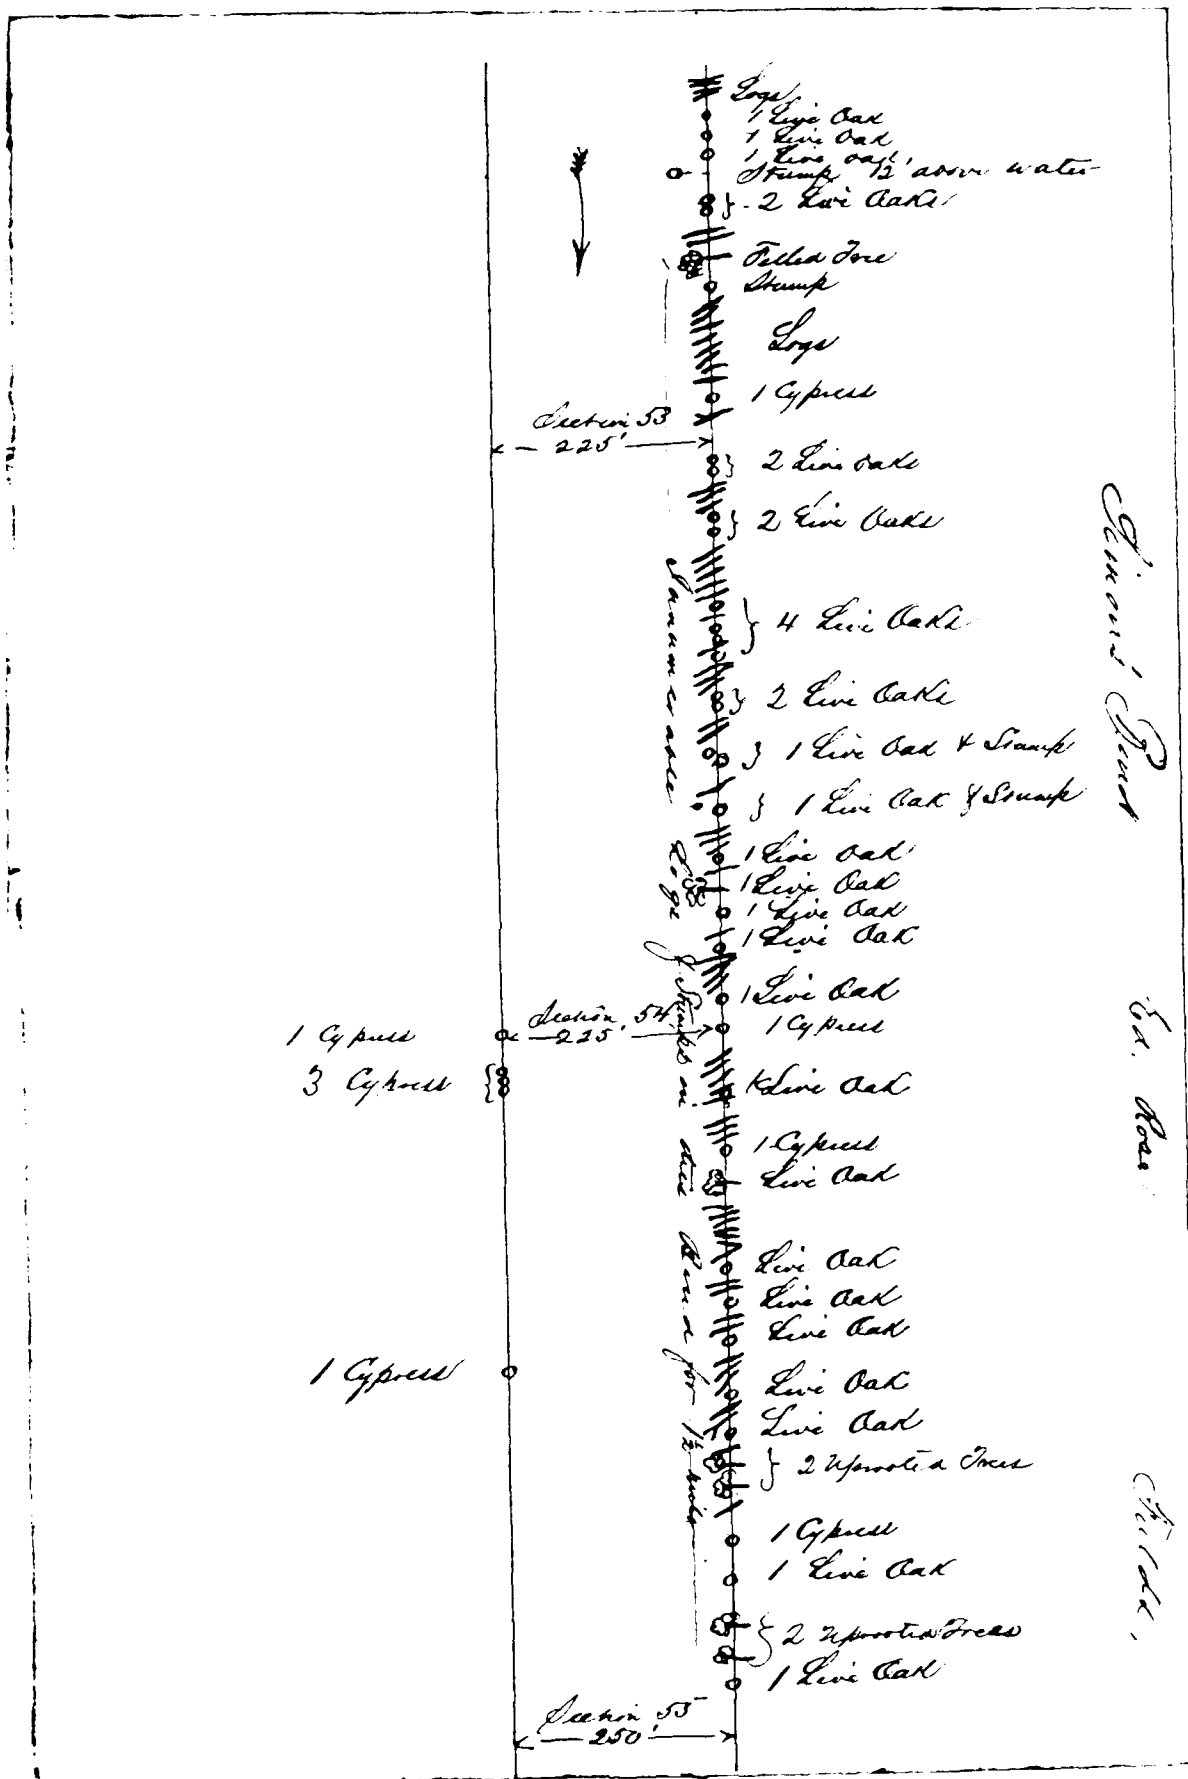 Logs
1 Live Oak
1 Live Oak
1 Live oak
Stump 12' above water
2 Live Oaks
Felled Tree
Stump
Logs
1 Cypress
Section 53
225'
2 Live oaks
2 Live Oaks
4 Live Oaks
2 Live Oaks
1 Live Oak & Stump
1 Live Oak & Stump
1 Live Oak
1 Live Oak
1 Live Oak
1 Live Oak
1 Live Oak
1 Cypress
Section 54
225'
1 Cypress
3 Cypress
Live Oak
1 Cypress
Live Oak
Live Oak
Live Oak
Live Oak
1 Cypress
Live Oak
Live Oak
2 Uprooted Trees
1 Cypress
1 Live Oak
2 Uprooted Trees
1 Live Oak
Section 55
250'
Innumerable Logs & Stumps in this Bend for 1½ miles
Bend
Ed. Rose